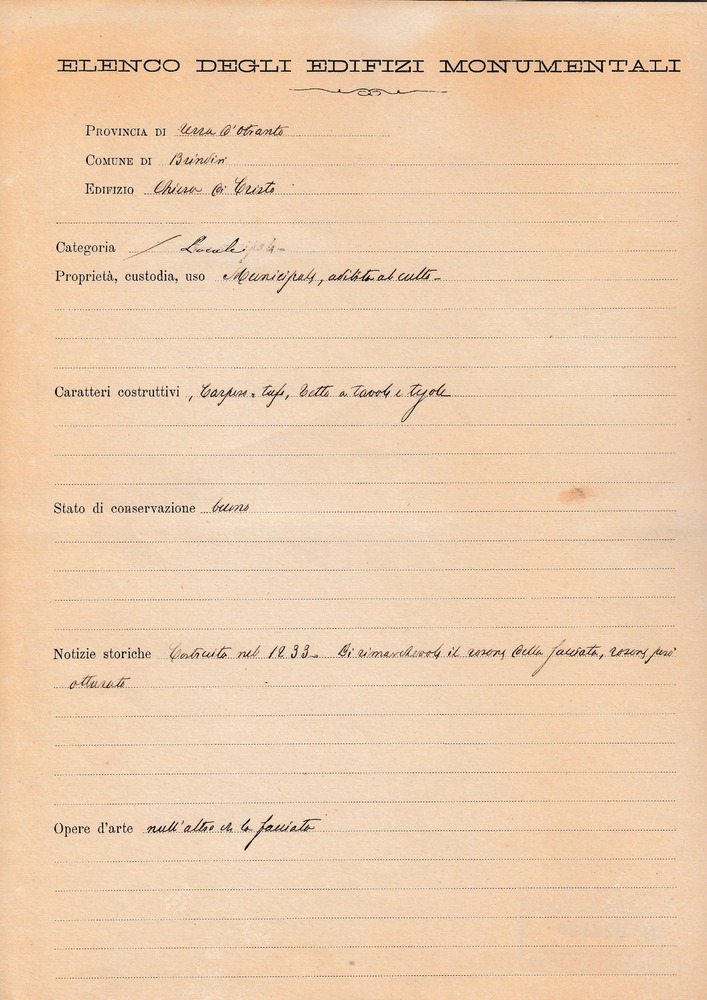 ELENCO DEGLI EDIFIZI MONUMENTALI
PROVINCIA DI Terra d'Otranto
COMUNE DI Brindisi
EDIFIZIO Chiesa di Cristo
Categoria / Locale
Proprietà, custodia, uso Municipale, adibita al culto -
Caratteri costruttivi , Carparo e tufo, tetto a tavole e tegole
Stato di conservazione buono
Notizie storiche Costruita nel 1233 - Di rimarchevole il rosone della facciata, rosone però
otturato
Opere d'arte null'altro che la facciata